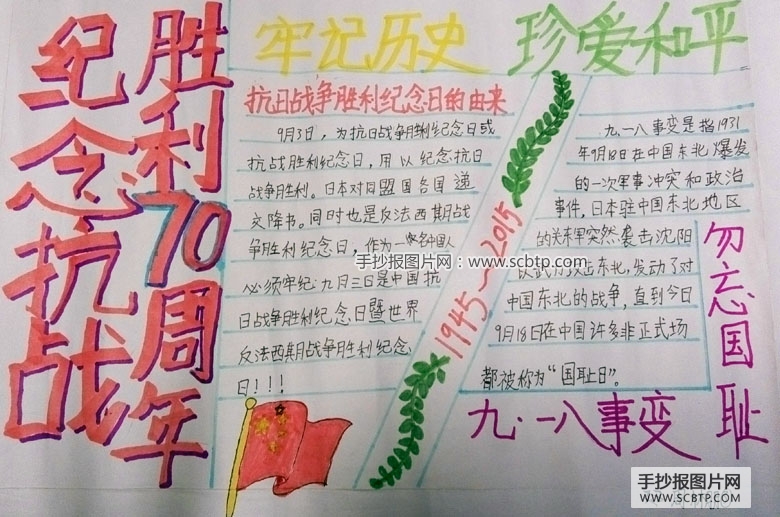 纪念抗战
胜利70周年
牢记历史 珍爱和平
抗日战争胜利纪念日的由来
9月3日，为抗日战争胜利纪念日或
抗战胜利纪念日，用以纪念抗日
战争胜利。日本对同盟国各国递
交降书。同时也是反法西期战
争胜利纪念日，作为一名中国人
必须牢纪：九月三日是中国抗
日战争胜利纪念日暨世界
反法西其月战争胜利纪念
日！！！
1945~2015
九、一八事变是指1931
年9月18日在中国东北爆发
的一次军事冲突和政治
事件，日本驻中国东北地区
的关东军突然袭击沈阳
以武力 东北，发动了对
中国东北的战争，直到今日
9月18日在中国许多非正式场
都被称为“国耻日”。
勿忘国耻
九·一八事变
手抄报图片网：www.scbtp.com
手抄报图片网
WWW.SCBTP.COM